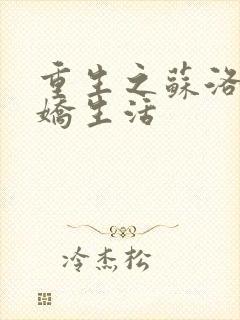 重生之蘇洛
嬌生活
冷杰松